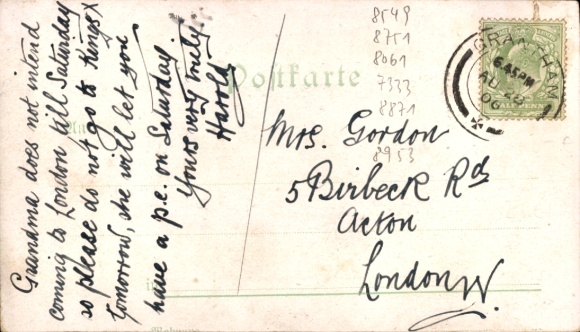 Grandma does not intend
coming to London till Saturday
so please do not go to Kings X
tomorrow, she will let you
have a p.c. on Saturday
Yours very truly
Harold
Postkarte
8549
8751
8061
7333
8871
8953
GRANTHAM
6.45 PM
AU
06
HALF PENNY
Mrs. Gordon
5 Birbeck Rd
Acton
London W.